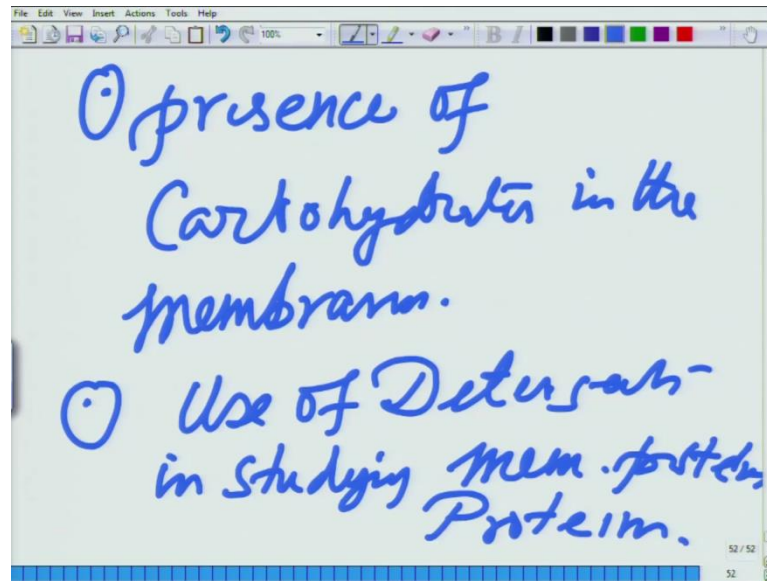 File Edit View Insert Actions Tools Help
100%
B I
presence of
Carbohydrates in the
membrane.
Use of Detergents
in studying mem. protein
Protein.
52 / 52
52